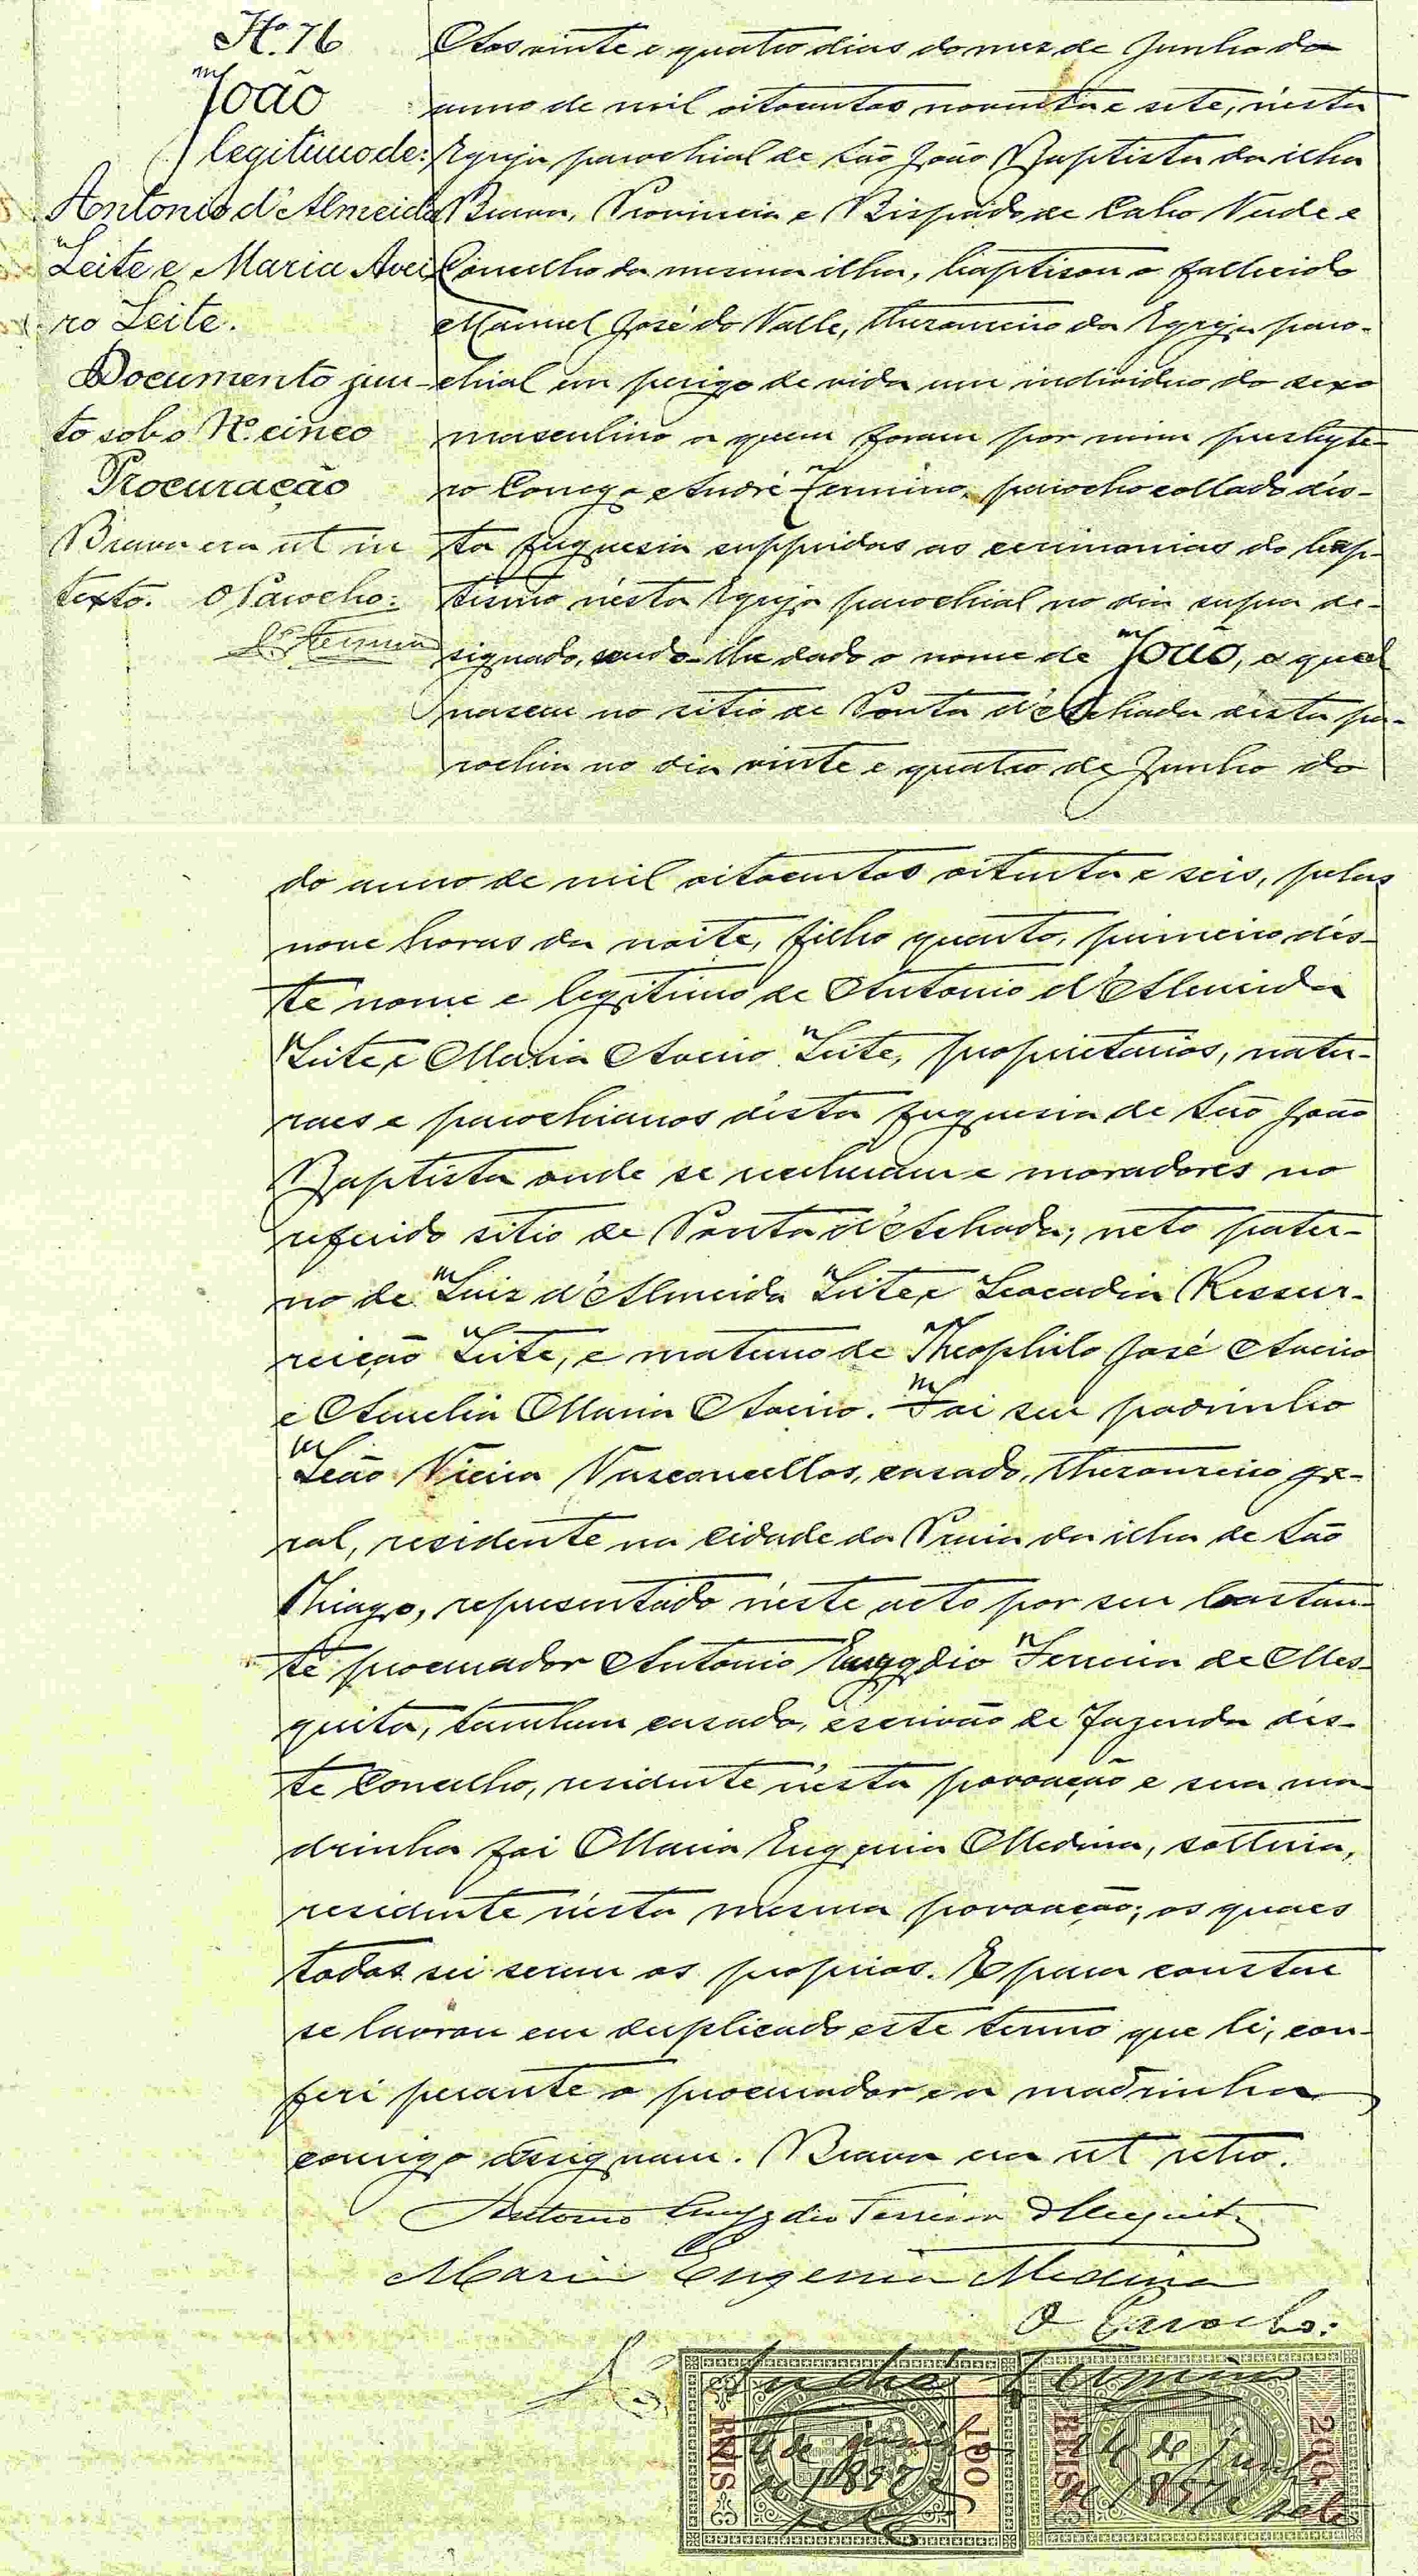 Nº 76
João
legitimo de:
Antonio d'Almeida
Leite e Maria Avei
ro Leite.
Documento jun-
to sob o Nº cinco
Procuração
Brava era ut in
texto. O Parocho:
Cº Firmino
Aos vinte e quatro dias do mez de Junho do
anno de mil oitocentos noventa e sete, n'esta
Egreja parochial de São João Baptista da ilha
Brava, Provincia e Bispado de Cabo Verde e
Concelho da mesma ilha, baptisou o fallecido
Manuel José do Valle, thesoureiro da Egreja paro-
chial em perigo de vida um individuo do sexo
masculino a quem foram por mim presbyte-
ro Conego André Firmino, parocho collado d'es-
ta freguesia suppridas as cerimonias do bap-
tismo n'esta Egreja parochial no dia supra de-
signado, sendo-lhe dado o nome de João, o qual
nasceu no sitio de Ponta d'Achada d'esta pa-
rochia no dia vinte e quatro de Junho do
do anno de mil oitocentos oitenta e seis, pelas
nove horas da noite, filho quarto, primeiro d'es-
te nome e legitimo de Antonio d'Almeida
Leite e Maria Aveiro Leite, proprietarios, natu-
raes e parochianos d'esta freguesia de São João
Baptista onde se receberam e moradores no
referido sitio de Ponta d'Achada; neto pater-
no de Luiz d'Almeida Leite e Leocadia Ressur-
reição Leite, e materno de Theophilo José Aveiro
e Aurelia Maria Aveiro. Foi seu padrinho
Leão Vieira Vasconcellos, casado, thesoureiro ge-
ral, residente na Cidade da Praia da ilha de São
Thiago, representado n'este acto por seu bastan-
te procurador Antonio Emygdio Ferreira de Mes-
quita, tambem casado, escrivão de Fazenda d'es-
te Concelho, residente n'esta povoação e sua ma-
drinha foi Maria Eugenia Medina, solteira,
residente n'esta mesma povoação; os quaes
todos sei serem os proprios. E para constar
se lavrou em duplicado este termo que li, con-
feri perante o procurador e a madrinha
comigo assignam. Brava era ut retro.
Antonio Emygdio Ferreira d'Mesquita
Maria Eugenia Medina
O Parocho:
Cº André Firmino
REIS 100 REIS 200
24 de junho 24 de Junho
de 1897 e de 1897 e sete
sete